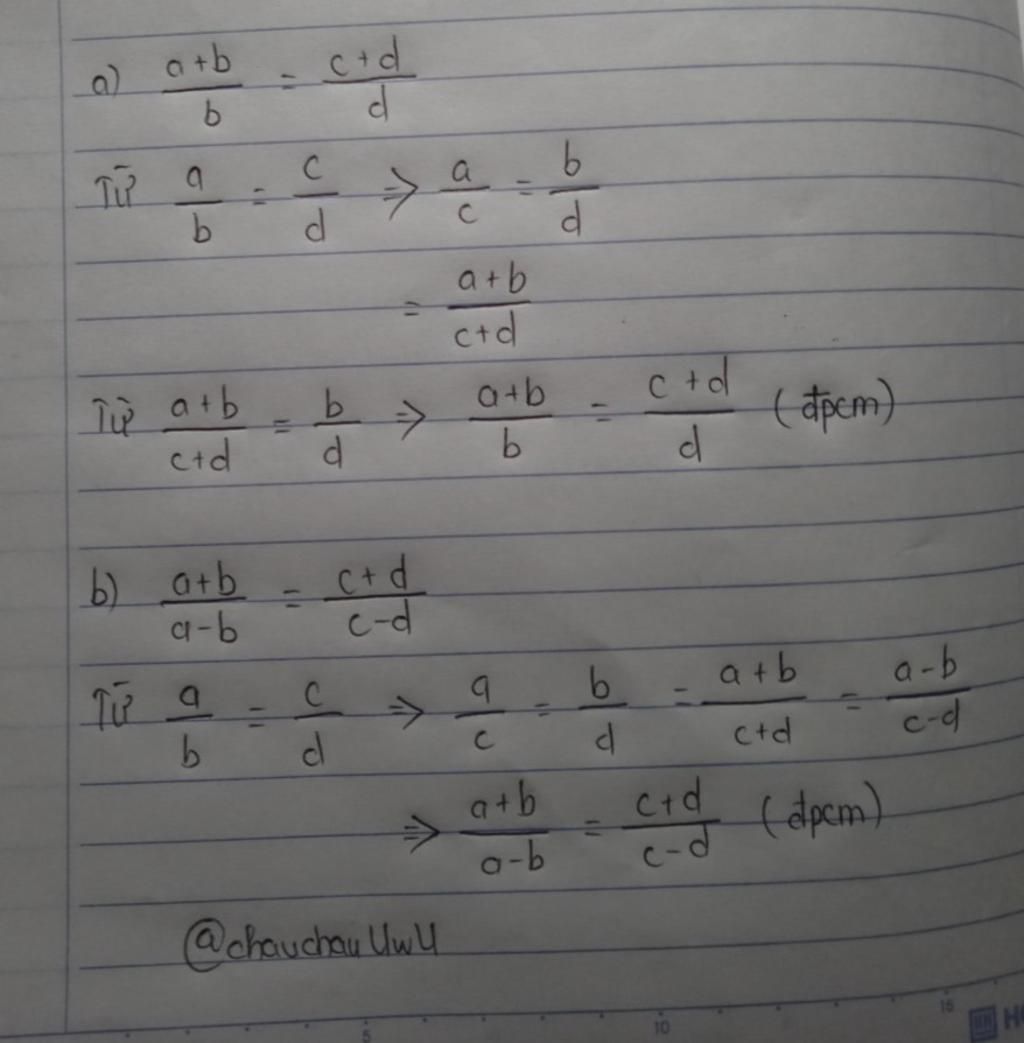 a) (a+b)/b = (c+d)/d
Từ a/b = c/d ⇒ a/c = b/d
= (a+b)/(c+d)
Từ (a+b)/(c+d) = b/d ⇒ (a+b)/b = (c+d)/d (đpcm)
b) (a+b)/(a-b) = (c+d)/(c-d)
Từ a/b = c/d ⇒ a/c = b/d = (a+b)/(c+d) = (a-b)/(c-d)
⇒ (a+b)/(a-b) = (c+d)/(c-d) (đpcm)
@chauchauUwU
5 10 15